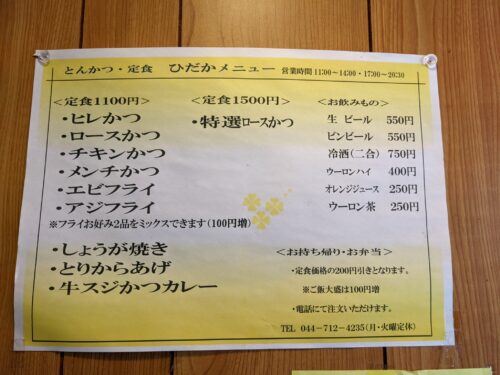 とんかつ・定食 ひだかメニュー 営業時間 11:00～14:00・17:00～20:30
<定食1100円>
・ヒレかつ
・ロースかつ
・チキンかつ
・メンチかつ
・エビフライ
・アジフライ
※フライお好み2品をミックスできます(100円増)
・しょうが焼き
・とりからあげ
・牛スジかつカレー
<定食1500円>
・特選ロースかつ
<お飲みもの>
生 ビール 550円
ビンビール 550円
冷酒(二合) 750円
ウーロンハイ 400円
オレンジジュース 250円
ウーロン茶 250円
<お持ち帰り・お弁当>
・定食価格の200円引きとなります。
※ご飯大盛は100円増
・電話にて注文いただけます。
TEL 044-712-4235(月・火曜定休)